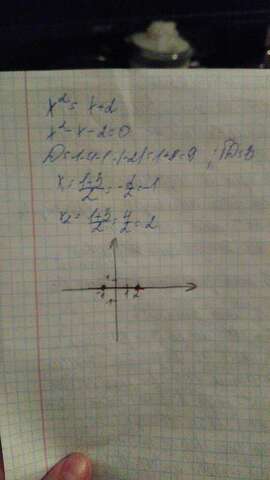 x² = x+2
x²-x-2=0
D=1-4·1·(-2)=1+8=9 ; √D=3
x₁ = (1-3)/2 = -2/2 = -1
x₂ = (1+3)/2 = 4/2 = 2
1
-1 1 2
-1